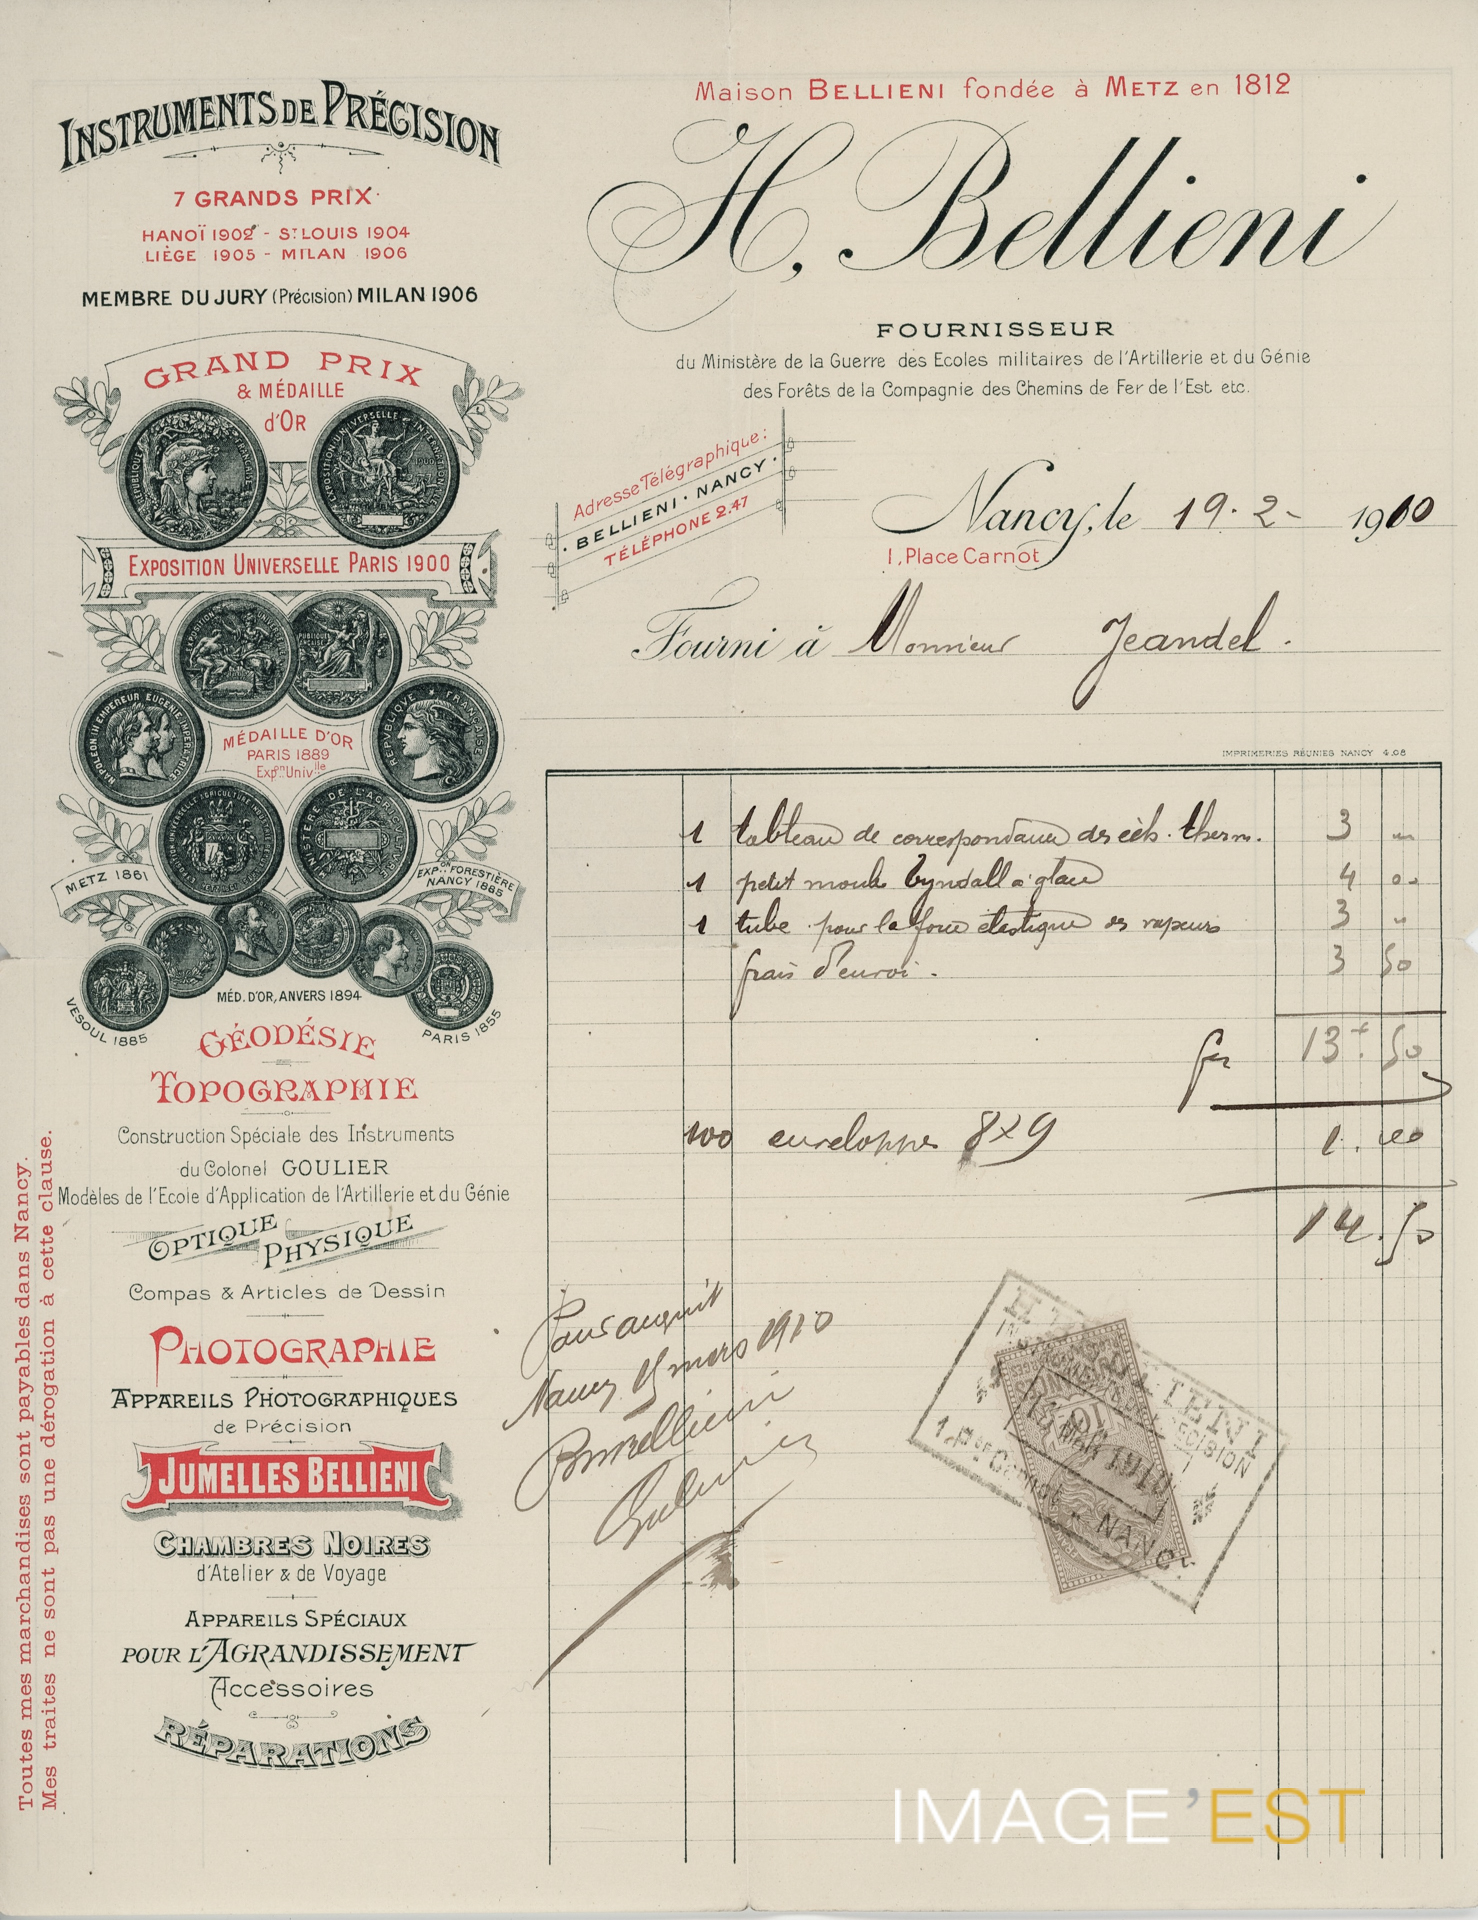 INSTRUMENTS DE PRÉCISION
7 GRANDS PRIX
HANOÏ 1902 - ST LOUIS 1904
LIÈGE 1905 - MILAN 1906
MEMBRE DU JURY (Précision) MILAN 1906
GRAND PRIX
& MÉDAILLE
d'OR
RÉPUBLIQUE FRANÇAISE
EXPOSITION UNIVERSELLE INTERNATIONALE 1900
EXPOSITION UNIVERSELLE PARIS 1900
NAPOLEON III EMPEREUR EUGENIE IMPERATRICE
REPUBLIQUE FRANÇAISE
MÉDAILLE D'OR
PARIS 1889
Expon Univlle
MINISTERE DE L'AGRICULTURE
METZ 1861
EXPON FORESTIÈRE
NANCY 1885
MÉD. D'OR, ANVERS 1894
VESOUL 1885
PARIS 1855
GÉODÉSIE
TOPOGRAPHIE
Construction Spéciale des Instruments
du Colonel GOULIER
Modèles de l'Ecole d'Application de l'Artillerie et du Génie
OPTIQUE PHYSIQUE
Compas & Articles de Dessin
PHOTOGRAPHIE
APPAREILS PHOTOGRAPHIQUES
de Précision
JUMELLES BELLIENI
CHAMBRES NOIRES
d'Atelier & de Voyage
APPAREILS SPÉCIAUX
POUR L'AGRANDISSEMENT
Accessoires
RÉPARATIONS
Toutes mes marchandises sont payables dans Nancy.
Mes traites ne sont pas une dérogation à cette clause.
Maison BELLIENI fondée à METZ en 1812
H. Bellieni
FOURNISSEUR
du Ministère de la Guerre des Ecoles militaires de l'Artillerie et du Génie
des Forêts de la Compagnie des Chemins de Fer de l'Est etc.
Adresse Télégraphique:
BELLIENI · NANCY ·
TÉLÉPHONE 2.47
Nancy, le 19. 2 - 1910
1, Place Carnot
Fourni à Monsieur Jeandel.
IMPRIMERIES RÉUNIES NANCY 4.08
1 tableau de correspondance des éch. therm. 3 "
1 petit moule Tyndall à glace 4 00
1 tube pour la force élastique des vapeurs 3 "
frais d'envoi. 3 50
13 f. 50
100 enveloppes 8x9 1. 00
14. 50
Pour acquit
Nancy 15 mars 1910
Bellieni
H. BELLIENI
PRÉCISION
15 MAR 1910
1, Pce Carnot, NANCY
10c
IMAGE'EST